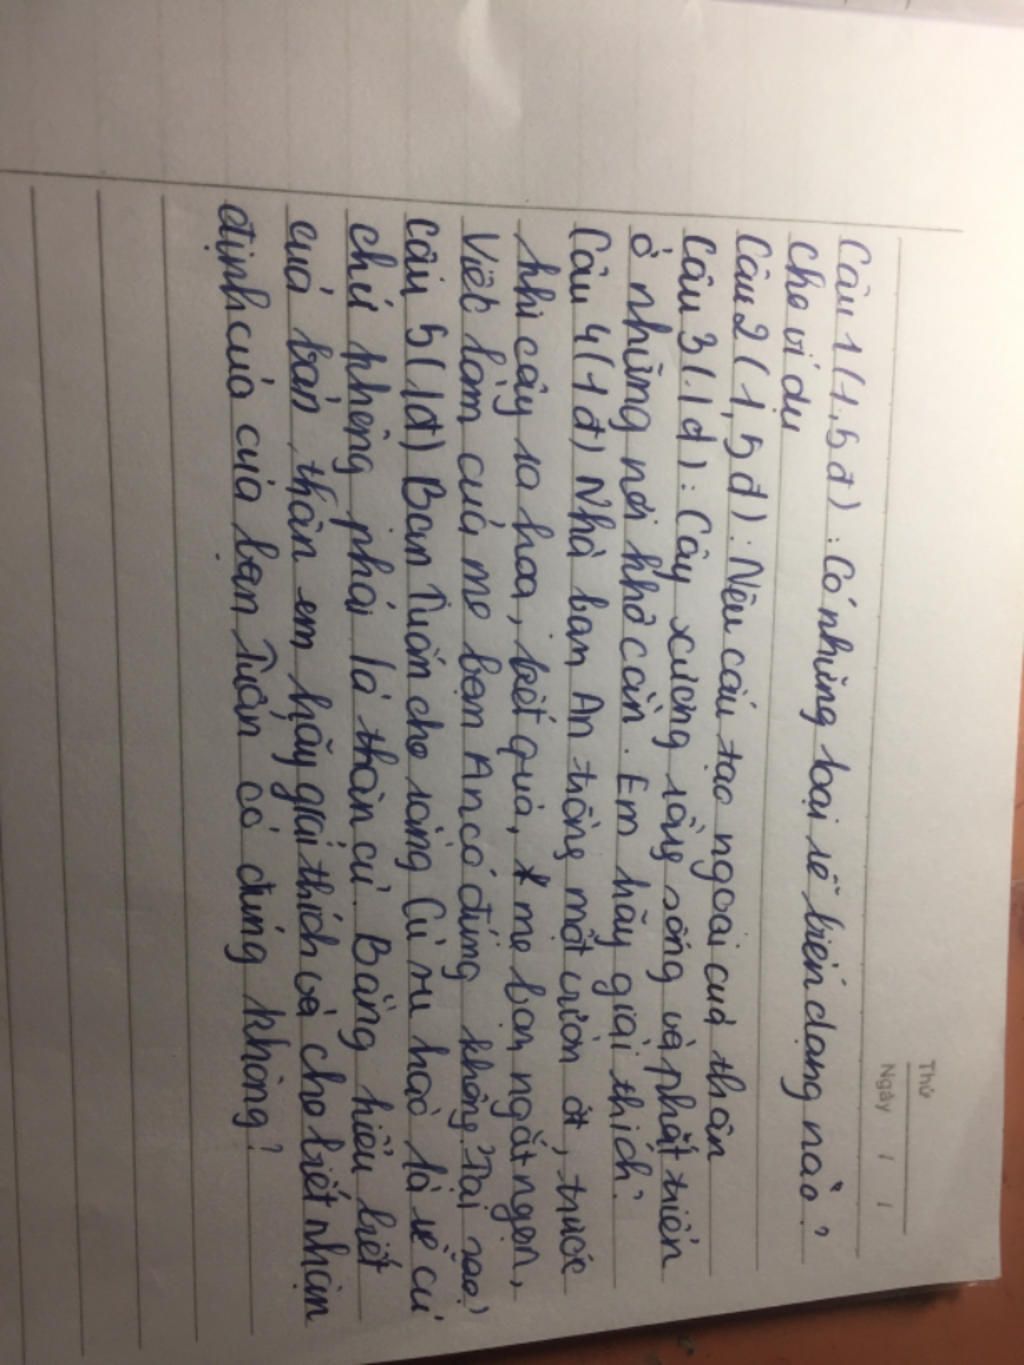 Thứ
Ngày / /
Câu 1 (1,5 đ) : Có những loại rễ biến dạng nào ?
Cho ví dụ
Câu 2 (1,5 đ) : Nêu cấu tạo ngoài của thân
Câu 3 (1 đ) : Cây xương rồng sống và phát triển
ở những nơi khô cằn. Em hãy giải thích?
Câu 4 (1 đ) Nhà bạn An trồng một vườn ớt, trước
khi cây ra hoa, kết quả, mẹ bạn ngắt ngọn,
Việc làm của mẹ bạn An có đúng không? Tại sao?
Câu 5 (1đ) Bạn Tuấn cho rằng Củ su hào là rễ củ
chứ không phải là thân củ. Bằng hiểu biết
của bản thân em hãy giải thích và cho biết nhận
định của của bạn Tuấn có đúng không?